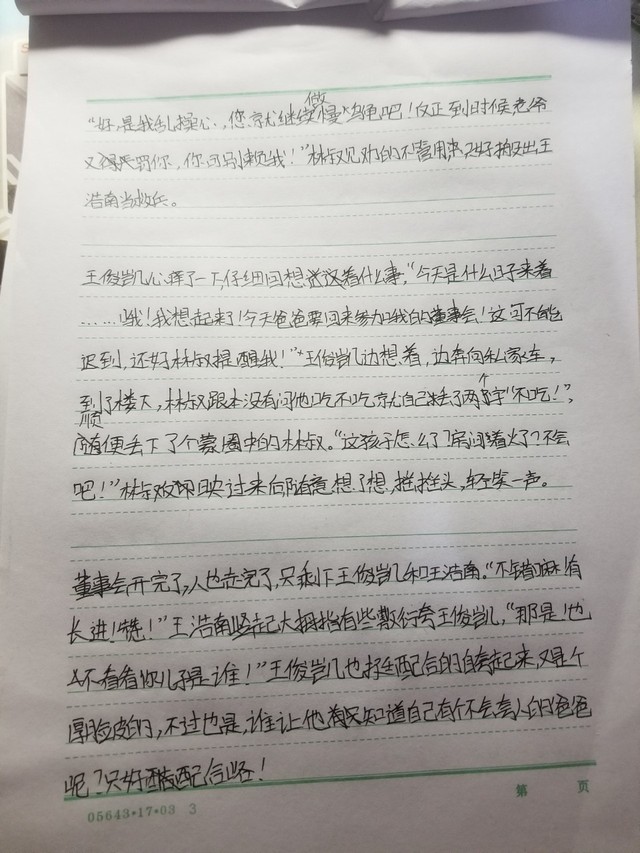 做
"好,是我乱操心,您就继续慢火乌龟吧!反正到时候老爷
又得罚你,你可别赖我!"林叔见劝的不管用来,只好搬出王
浩南当救兵。
王俊凯心晖了一下,仔细回想说这着什么事,"今天是什么日子来着
……哦!我想起来了!今天爸爸要回来参加我的董事会!这可不能
迟到,还好林叔提醒我!"王俊凯边想着,边奔向私家车,
到了楼下,林叔跟本没有问他吃不吃就自己丢了两个字"不吃!",
顺
随便丢下了个蒙圈中的林叔。"这孩子怎么了?房间着火了?不会
吧!"林叔反映过来后随意想了想,摇摇头,轻笑一声。
董事会开完了,人也走完了,只剩下王俊凯和王浩南。"不错嘛!有
长进!赞!"王浩南竖起大拇指有些敷衍夸王俊凯,"那是!也
不看看你儿子是谁!"王俊凯也挺配合的自夸起来,又是个
厚脸皮的,不过也是,谁让他知道自己有个不会夸人的爸爸
呢?只好配合咯!
05643·17·03 3
第 页